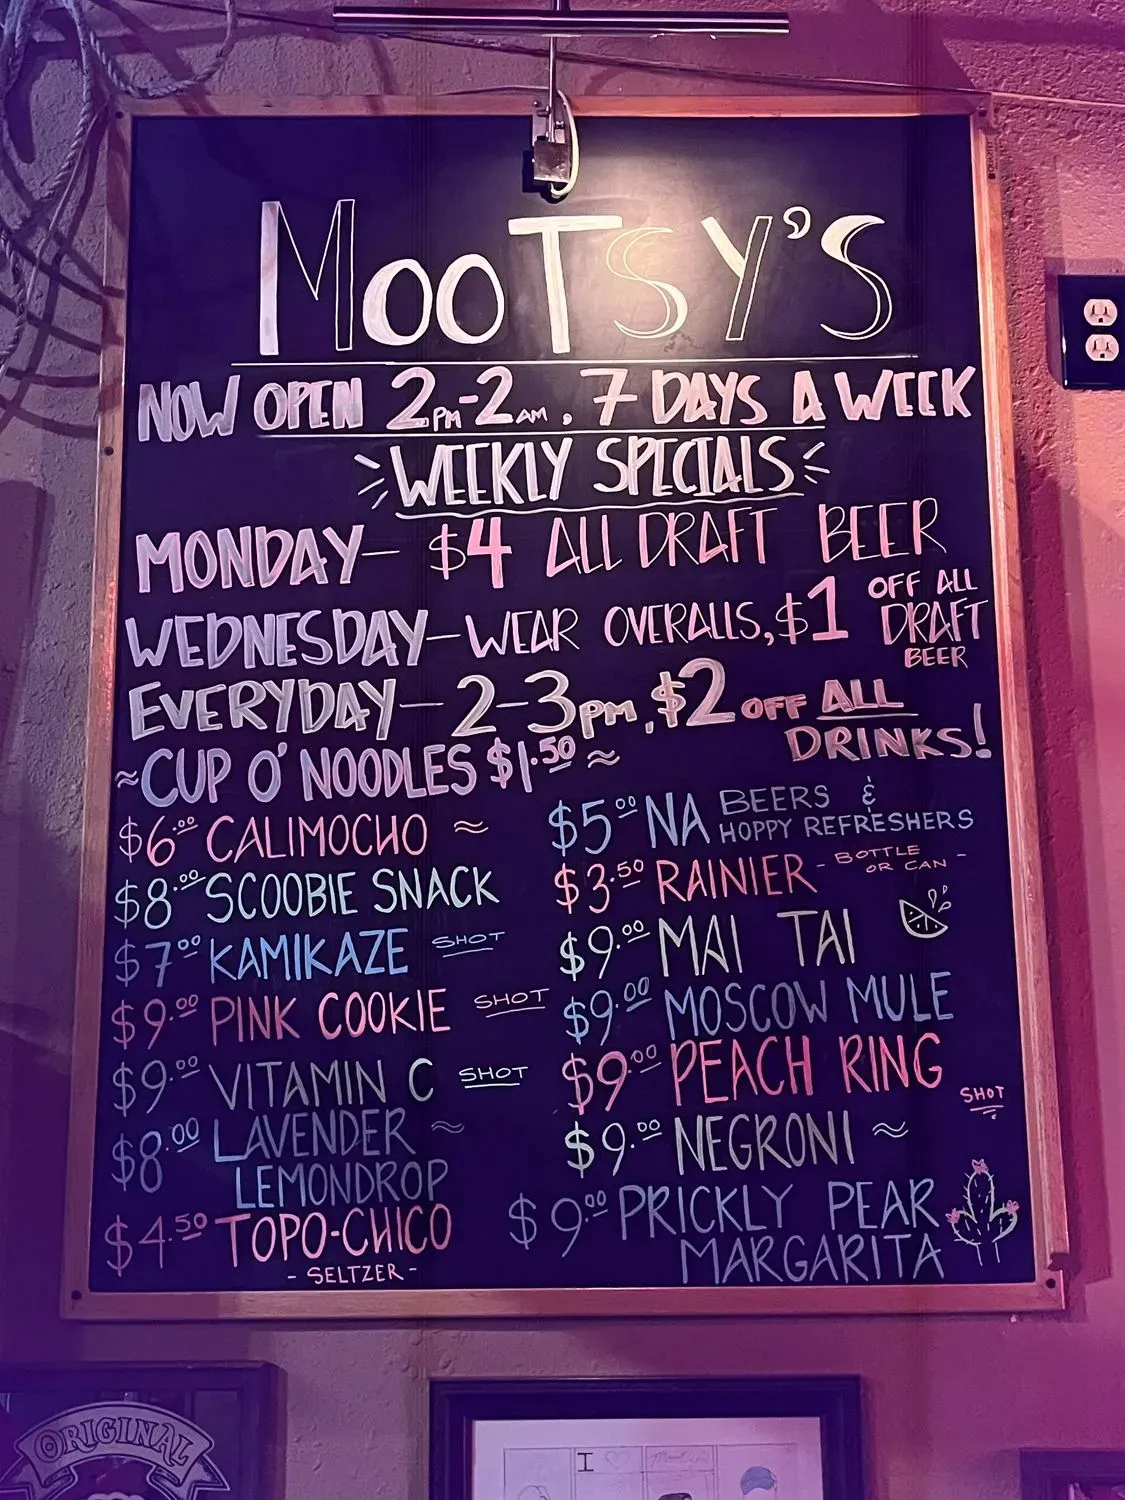 MOOTSY'S
NOW OPEN 2PM-2AM, 7 DAYS A WEEK
WEEKLY SPECIALS
MONDAY- $4 ALL DRAFT BEER
WEDNESDAY-WEAR OVERALLS, $1 OFF ALL DRAFT BEER
EVERYDAY-2-3PM, $2 OFF ALL DRINKS!
~CUP O' NOODLES $1.50~
$6.00 CALIMOCHO ~
$8.00 SCOOBIE SNACK
$7.00 KAMIKAZE SHOT
$9.00 PINK COOKIE SHOT
$9.00 VITAMIN C SHOT
$8.00 LAVENDER ~
LEMONDROP
$4.50 TOPO-CHICO
-SELTZER-
$5.00 NA BEERS & HOPPY REFRESHERS
$3.50 RAINIER -BOTTLE OR CAN-
$9.00 MAI TAI
$9.00 MOSCOW MULE
$9.00 PEACH RING SHOT
$9.00 NEGRONI ~
$9.00 PRICKLY PEAR
MARGARITA
ORIGINAL
I